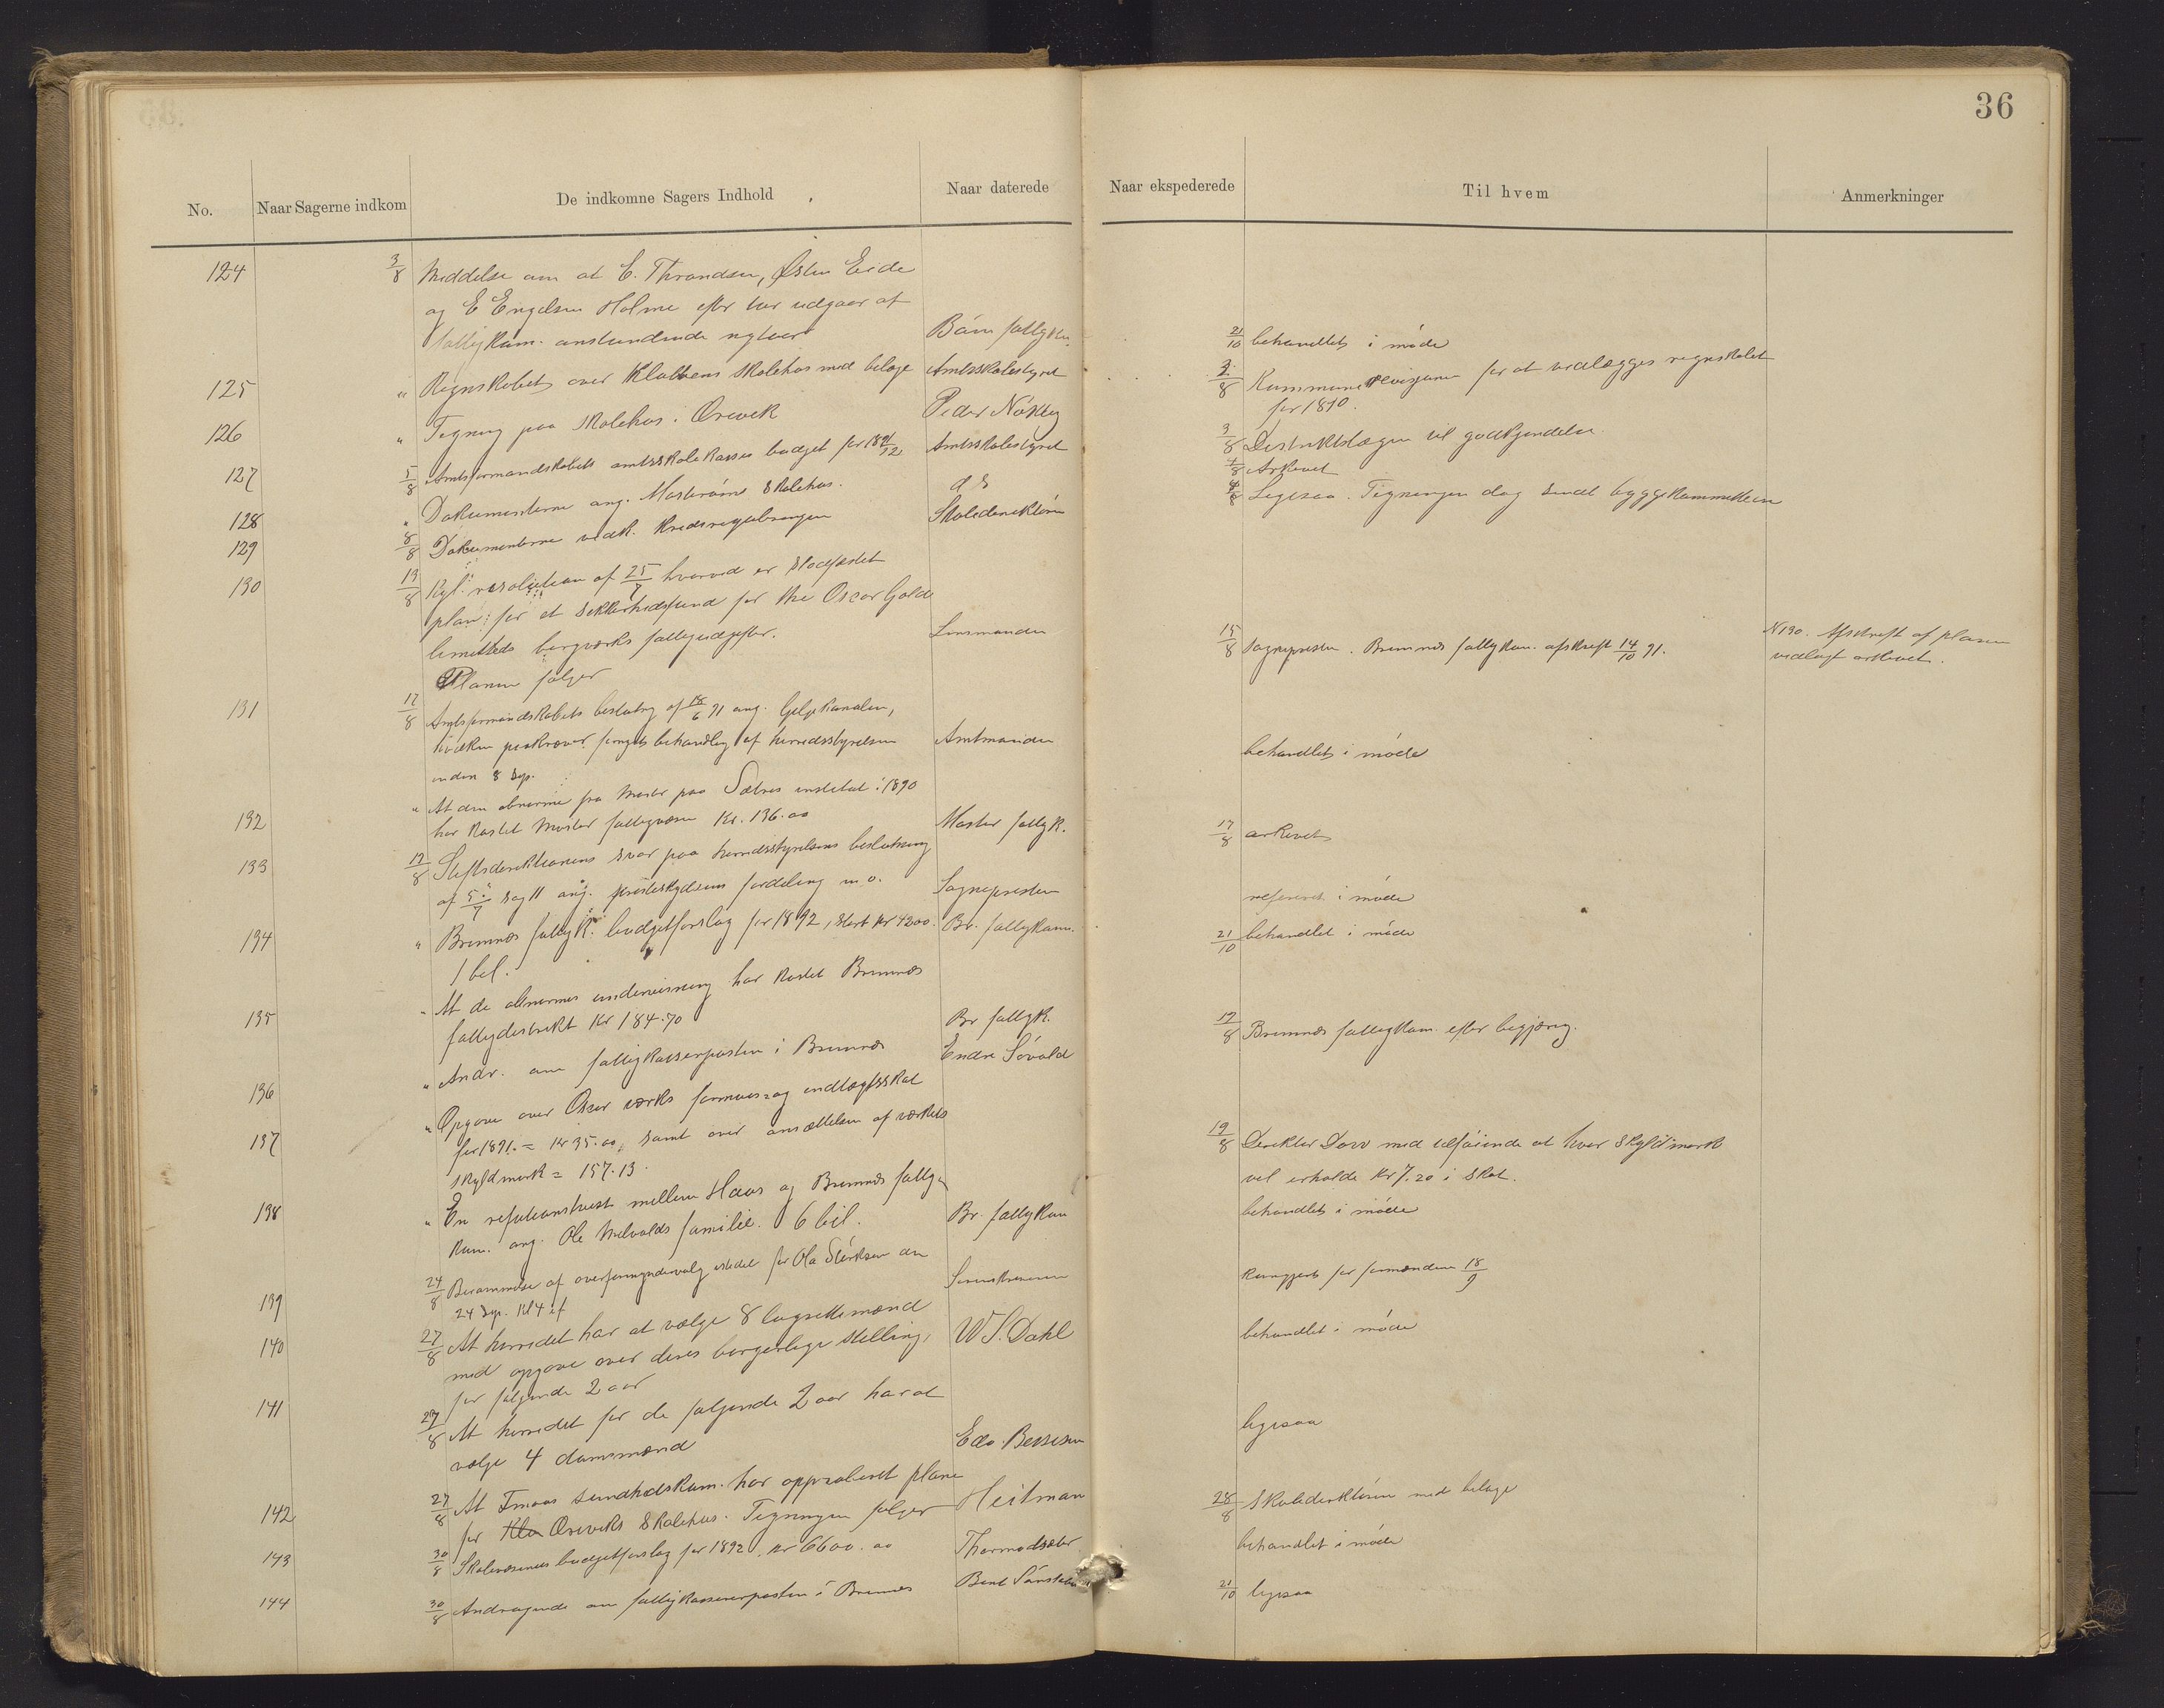 36
No.
Naar Sagerne indkom
De indkomne Sagers Indhold
Naar daterede
Naar ekspederede
Til hvem
Anmerkninger
124 3/8 Meddelse om at E. Throndsen, Østen Eide
og E Engelsen Holme efter tur udgaar af
fattigkom.
21/10 behandlet i møde
125 " Regnskabet over Klubbens skolehus med bilage Amtsskolestyret
3/8 Kommunerevisjonen for at vedlægges regnskabet
for 1890.
126 " Tegning paa skolehus i Ørevik Peder Nökling
3/8 Distriktslægen til godkjendelse
127 5/8 Amtsformandskabets amtsskolekasses budget for 1891/92 Amtsskolestyret
4/8 Arkivet
128 " Dokumenterne ang. Mosterøens Skolehus. d s
4/8 Ligesaa. Tegningen dog sendt byggekommitteen
129 8/8 Dokumenterne vedk. kredsreguleringen Skoledirektøren
130 13/8 Kgl. resolution af 25/7 hvorved er stadfæstet
plan for et sikkerhedsfond for the Oscar Gold
limitteds bergværks fattigudgifter. Lensmanden
Planen følger
15/8 Sognepresten. Bremnes fattigkom. afskrift 14/10 91.
N 130. Afskrift af planen
vedlagt arkivet.
131 12/8 Amtsformandskabets beslutng af 18/6 91 ang. Gjeljekanalen,
hvilken paakræver fornyet behandling af herredsstyrelsen Amtmanden
inden 8 Sep.
behandlet i møde
132 " At den abnorme fra Moster paa Sælres institut i 1890
har kostet Moster fattigvæsen Kr. 136.00 Moster fattigk.
17/8 arkivet
133 17/8 Stiftsdirektionens svar paa herredsstyrelsens beslutning
af 5/7 sag 11 ang. presteskydsens fordeling m.v. Sognepresten
refereret i møde
134 " Bremnes fattigk. budgetforslag for 1892, stort kr 4200. Br. fattigkom.
1 bil.
21/10 behandlet i møde
135 " At de abnormes undervisning har kostet Bremnes
fattigdistrikt Kr 184.70 Br fattigk.
17/8 Bremnes fattigkom. efter begjæring.
136 " Andr. om fattigkasserposten i Bremnes Endre Sövold
137 " Opgave over Oscar værks formues- og indtægtsskat
for 1891. = Kr 35.00, samt over ansættelsen af værkets
skyldmark = 157.13.
19/8 Direktør Daw med tilføiende at hver skyldmark
vil erholde Kr 7.20 i skat.
138 " En refusionstvist mellem Haus og Bremnes fattig-
kom. ang. Ole Melvolds familie. 6 bil. Br. fattigkom
behandlet i møde
139 24/8 Berammelse af overformyndervalg istedet for Ola Størksen den
24 Sep. Kl 4 ef Sorenskriveren
kungjort for formanden 18/9
140 27/8 At herredet har at vælge 8 lagrettemænd
med opgave over deres borgerlige stilling, W S. Dahl
for følgende 2 aar
behandlet i møde
141 27/8 At herredet for de følgende 2 aar har at
vælge 4 domsmænd Edv. Bessesen
ligesaa
142 27/8 At Finaas sundhedskom. har approberet plane
for Øreviks Skolehus. Tegningen følger Heitman
28/8 Skoledirektøren med bilage
143 30/8 Skolevæsenets budgetforslag for 1892, kr 6600.00 Thormodsæter
behandlet i møde
144 30/8 Andragende om fattigkassererposten i Bremnes Bent
21/10 ligesaa